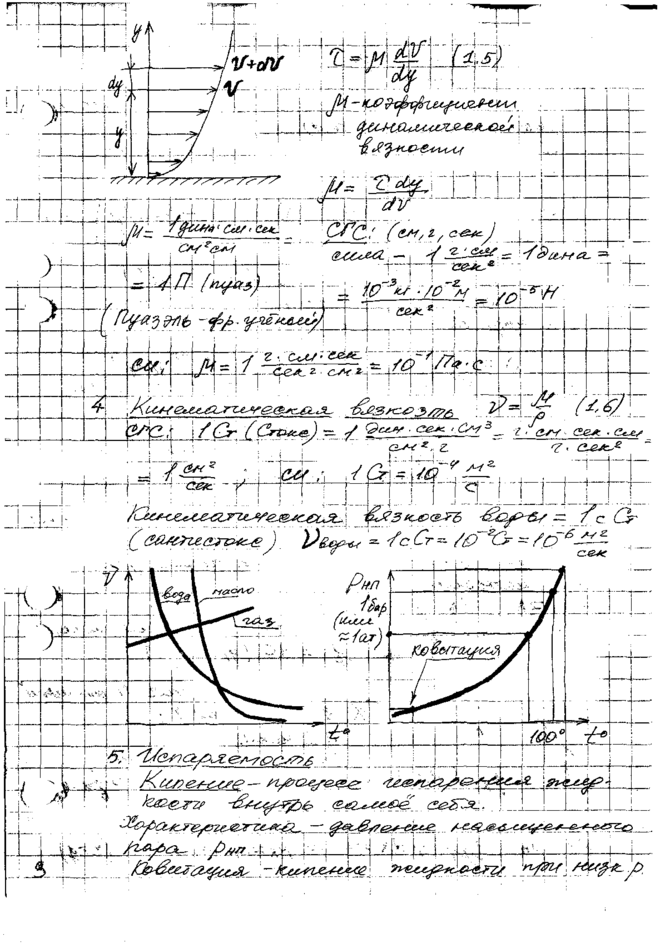 y
V+dV
dy
V
y
τ = μ dV/dy (1,5)
μ - коэффициент
динамической
вязкости
μ = τ dy / dV
μ = 1 дина·см·сек / см² см =
СГС: (см, г, сек)
сила - 1 г·см/сек² = 1 дина =
= 1 П (пуаз)
= 10⁻³кг·10⁻²м / сек² = 10⁻⁵ Н
(Пуазэль - фр. учёный)
си: μ = 1 г·см·сек / сек²·см² = 10⁻¹ Па·с
4 Кинематическая вязкозть ν = μ/ρ (1,6)
СГС: 1 Ст (Стокс) = 1 дин·сек·см³ / см²·г = г·см·сек·см / г·сек² =
= 1 см²/сек ; си: 1 Ст = 10⁻⁴ м²/с
Кинематическая вязкость воды = 1 сСт
(сантистокс) νводы = 1 сСт = 10⁻²Ст = 10⁻⁶ м²/сек
ν
вода
масло
газ
t°
Рнп
1 бар
(или
≈1ат)
ковитация
100°
t°
5. Испаряемость
Кипение - процесс испарения жид-
кости внутрь самоё себя.
Характеристика - давление насыщенного
пара Рнп
Ковитация - кипение жидкости при низк р.
9